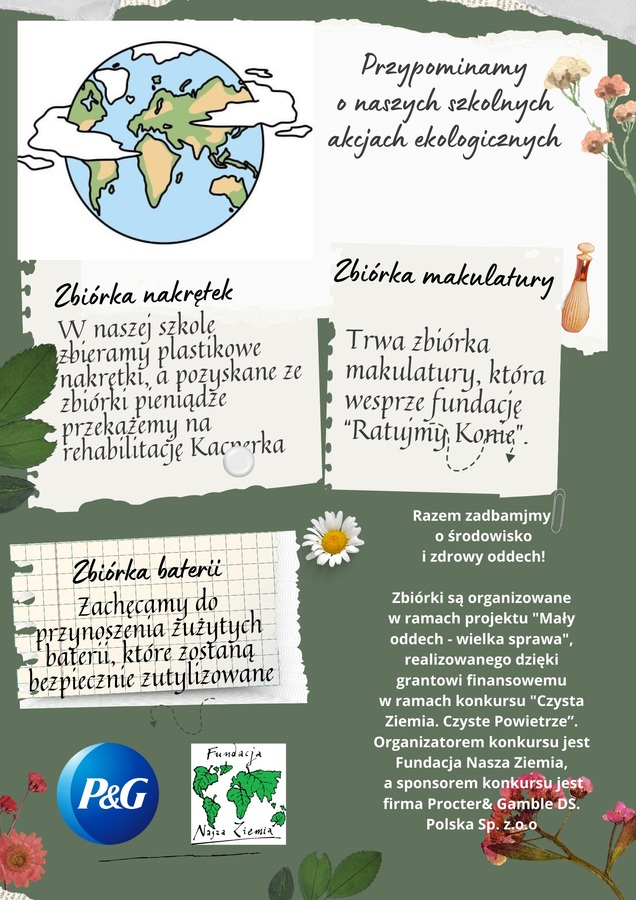 Przypominamy
o naszych szkolnych
akcjach ekologicznych
Zbiórka nakrętek
W naszej szkole
zbieramy plastikowe
nakrętki, a pozyskane ze
zbiórki pieniądze
przekażemy na
rehabilitację Kacperka
Zbiórka makulatury
Trwa zbiórka
makulatury, która
wesprze fundację
"Ratujmy Konie".
Zbiórka baterii
Zachęcamy do
przynoszenia zużytych
baterii, które zostaną
bezpiecznie zutylizowane
Razem zadbamjmy
o środowisko
i zdrowy oddech!
Zbiórki są organizowane
w ramach projektu "Mały
oddech - wielka sprawa",
realizowanego dzięki
grantowi finansowemu
w ramach konkursu "Czysta
Ziemia. Czyste Powietrze”.
Organizatorem konkursu jest
Fundacja Nasza Ziemia,
a sponsorem konkursu jest
firma Procter& Gamble DS.
Polska Sp. z.o.o
P&G
Fundacja
Nasza Ziemia